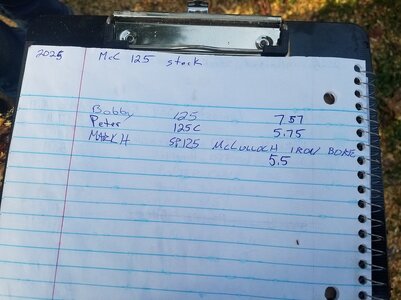 2025 McC 125 stock
Bobby 125 7.57
Peter 125C 5.75
Mark H SP125 McCULLOCH IRON BORE
5.5